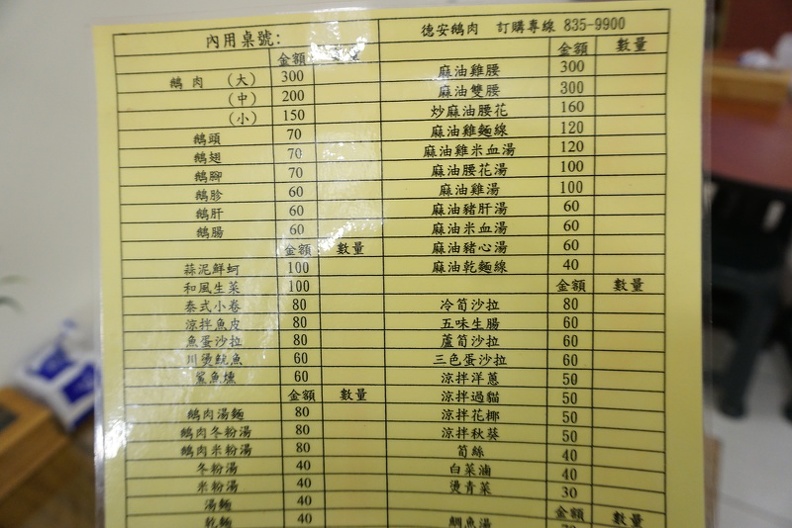 內用桌號:
金額 數量
鵝肉 (大) 300
(中) 200
(小) 150
鵝頭 70
鵝翅 70
鵝腳 70
鵝胗 60
鵝肝 60
鵝腸 60
金額 數量
蒜泥鮮蚵 100
和風生菜 100
泰式小卷 80
涼拌魚皮 80
魚蛋沙拉 80
川燙魷魚 60
鯊魚燻 60
金額 數量
鵝肉湯麵 80
鵝肉冬粉湯 80
鵝肉米粉湯 80
冬粉湯 40
米粉湯 40
湯麵 40
乾麵 40
德安鵝肉 訂購專線 835-9900
金額 數量
麻油雞腰 300
麻油雙腰 300
炒麻油腰花 160
麻油雞麵線 120
麻油雞米血湯 120
麻油腰花湯 100
麻油雞湯 100
麻油豬肝湯 60
麻油米血湯 60
麻油豬心湯 60
麻油乾麵線 40
金額 數量
冷筍沙拉 80
五味生腸 60
蘆筍沙拉 60
三色蛋沙拉 60
涼拌洋蔥 50
涼拌過貓 50
涼拌花椰 50
涼拌秋葵 50
筍絲 40
白菜滷 40
燙青菜 30
金額 數量
鯛魚湯